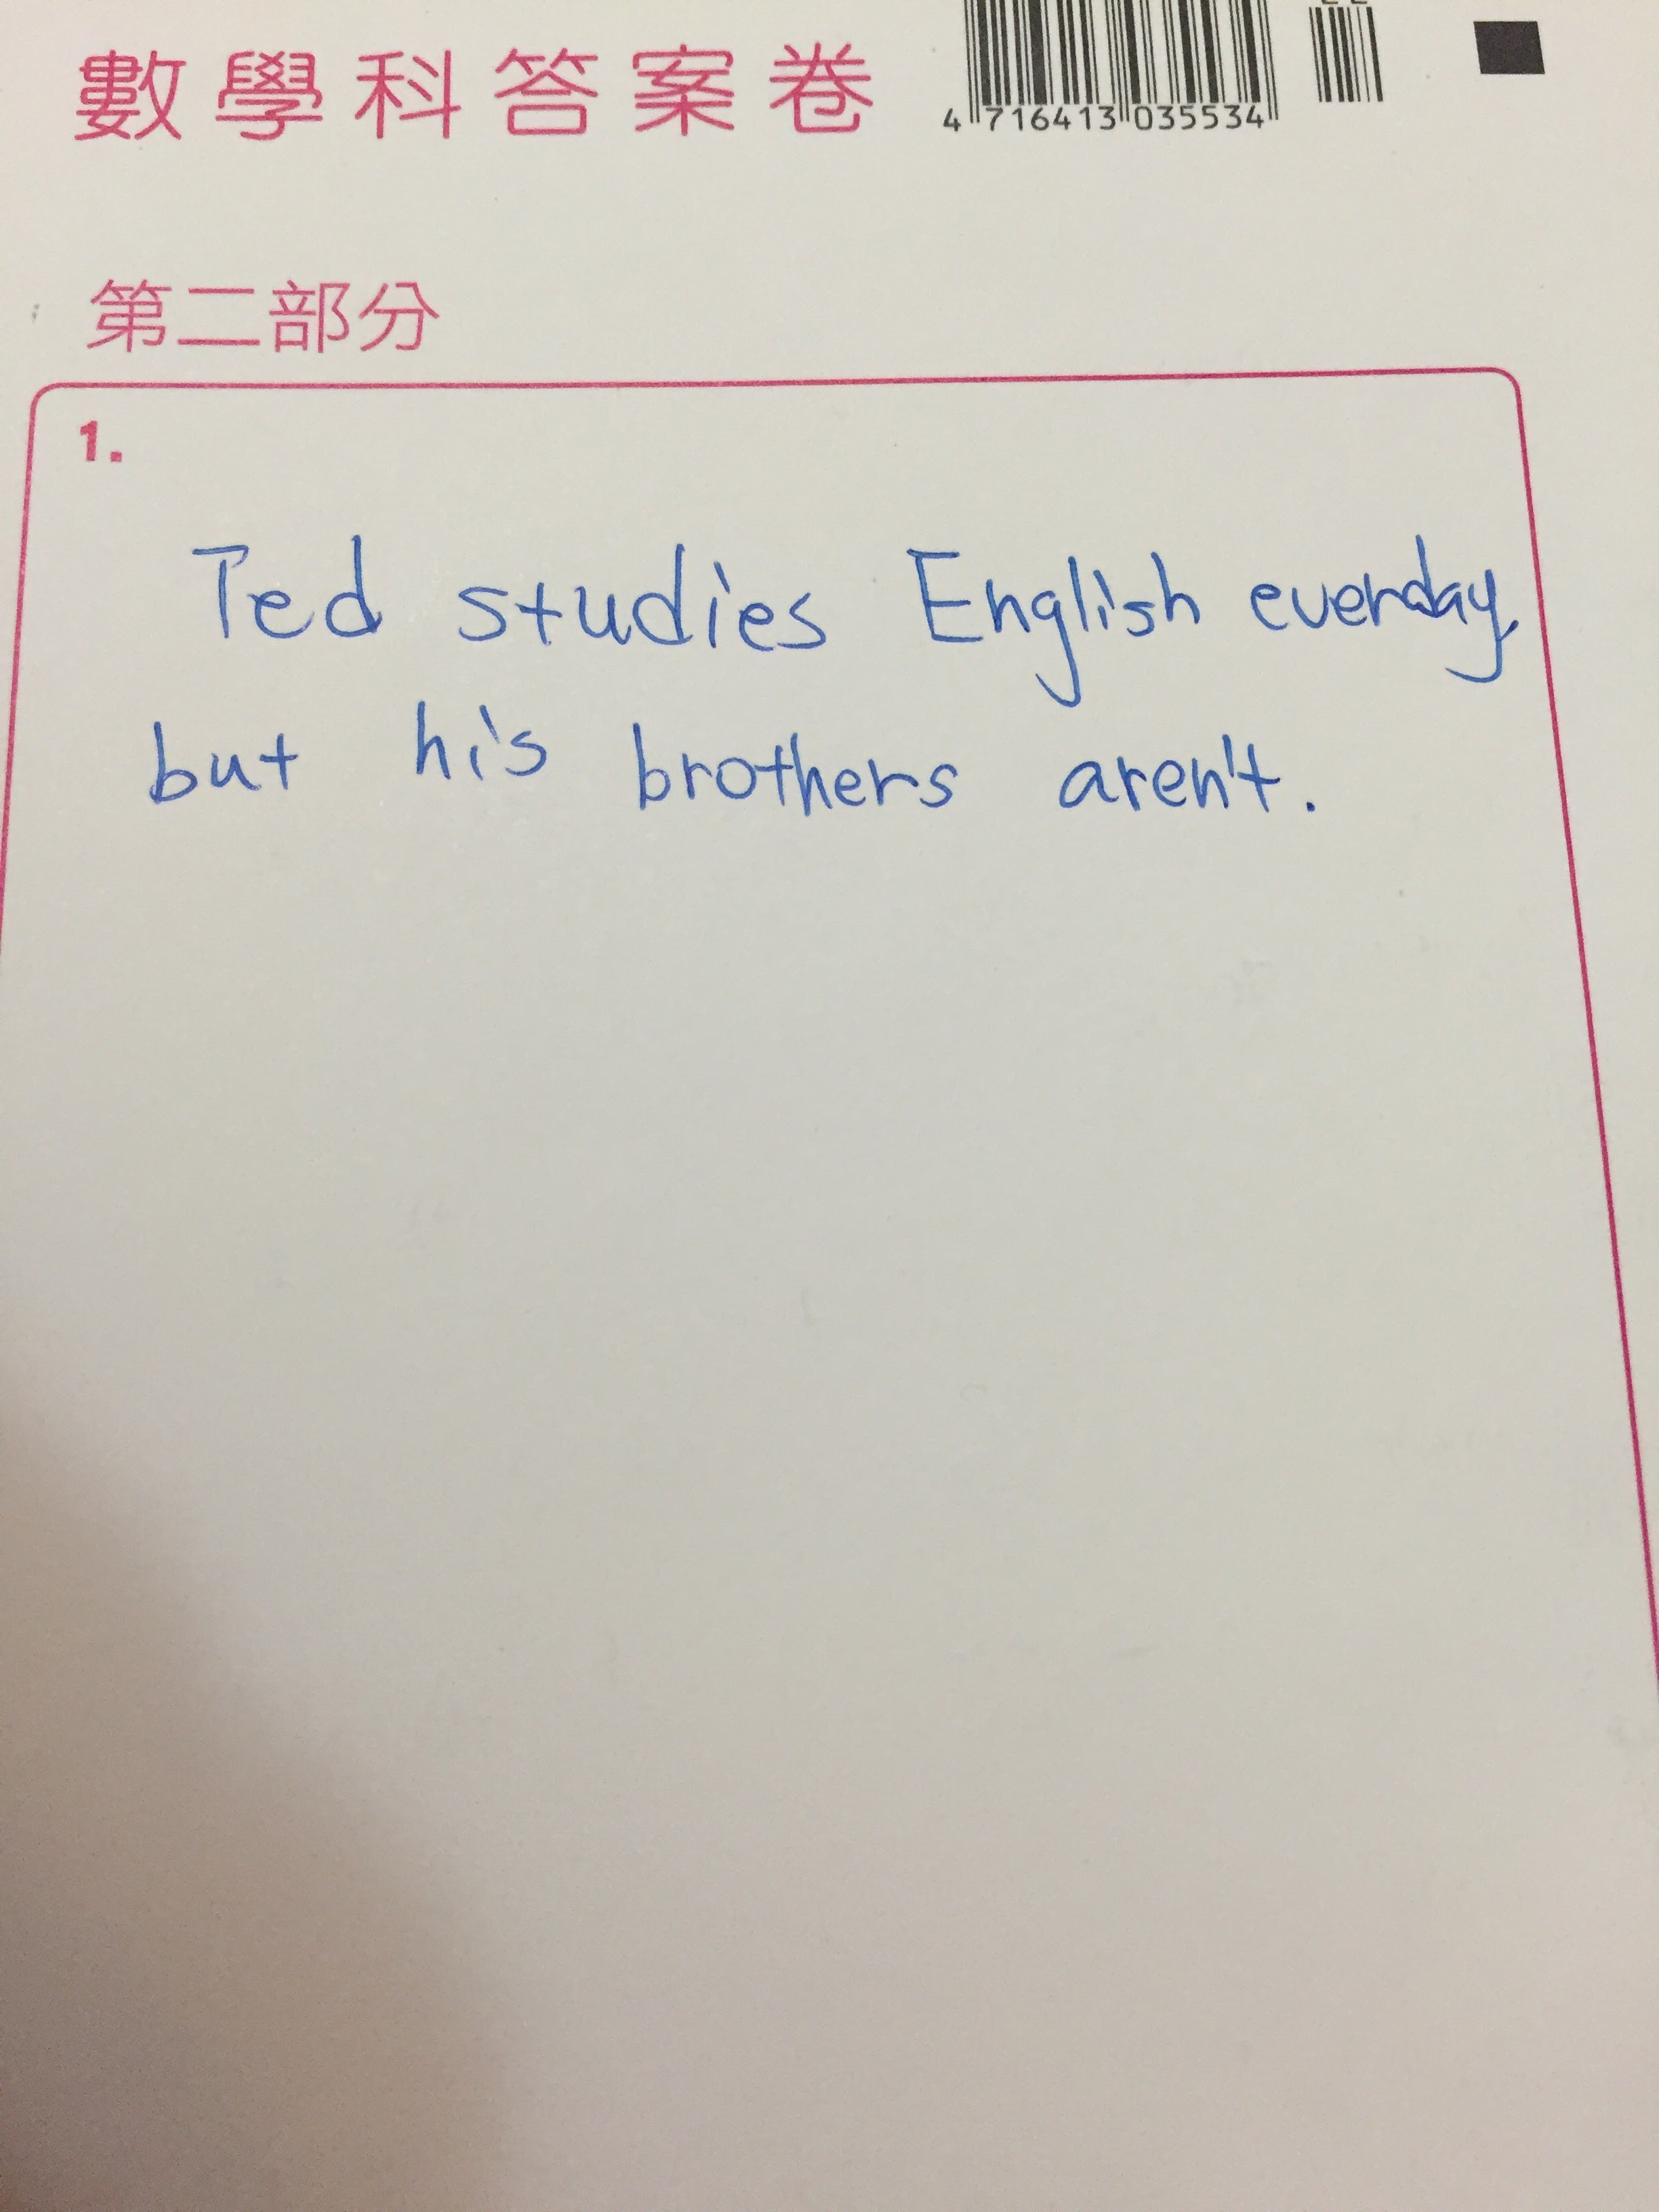 數學科答案卷
4 716413 035534
第二部分
1.
Ted studies English everday,
but his brothers aren't.